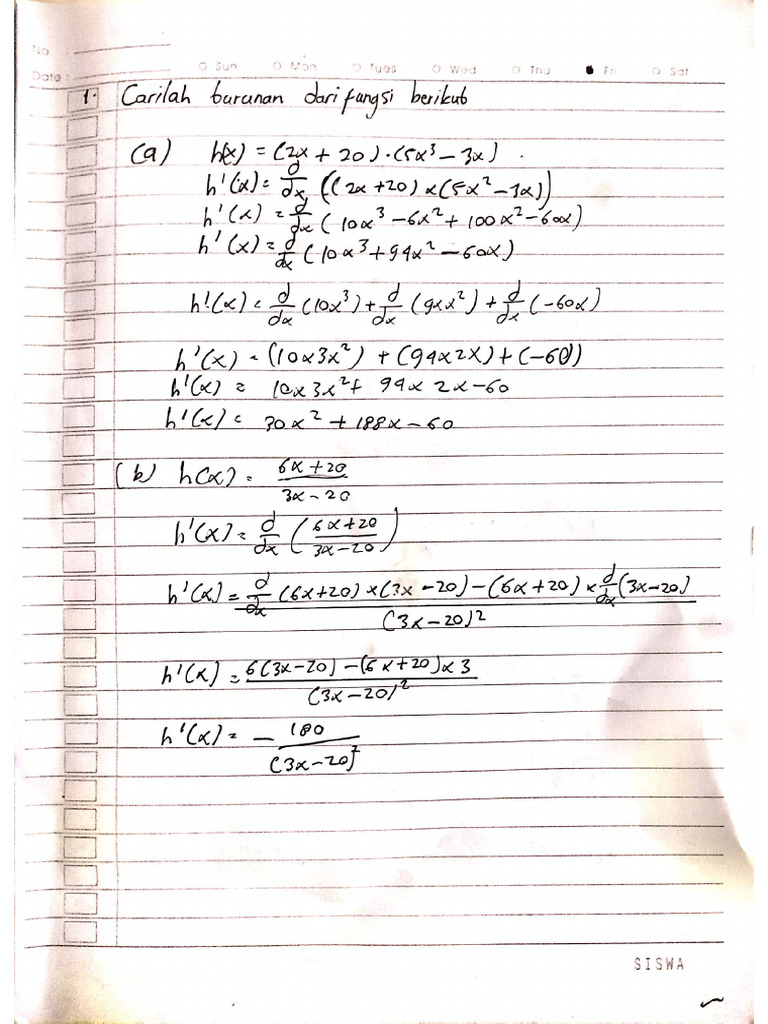 No
Date :
Sun Mon Tues Wed Thu Fri Sat
1. Carilah turunan dari fungsi berikut
(a) h(x) = (2x + 20) · (5x³ − 3x) .
h'(x) = d/dx ((2x+20) x (5x² − 3x))
h'(x) = d/dx (10x³ − 6x² + 100x² − 60x)
h'(x) = d/dx (10x³ + 94x² − 60x)
h'(x) = d/dx (10x³) + d/dx (94x²) + d/dx (−60x)
h'(x) = (10x3x²) + (94x2x) + (−60)
h'(x) = 10x3x² + 94x 2x − 60
h'(x) = 30x² + 188x − 60
(b) h(x) = 6x + 20 / 3x − 20
h'(x) = d/dx (6x+20 / 3x−20)
h'(x) = d/dx (6x+20) x (3x − 20) − (6x + 20) x d/dx (3x − 20) / (3x − 20)²
h'(x) = 6(3x−20) − (6x+20) x 3 / (3x − 20)²
h'(x) = − 180 / (3x − 20)²
SISWA